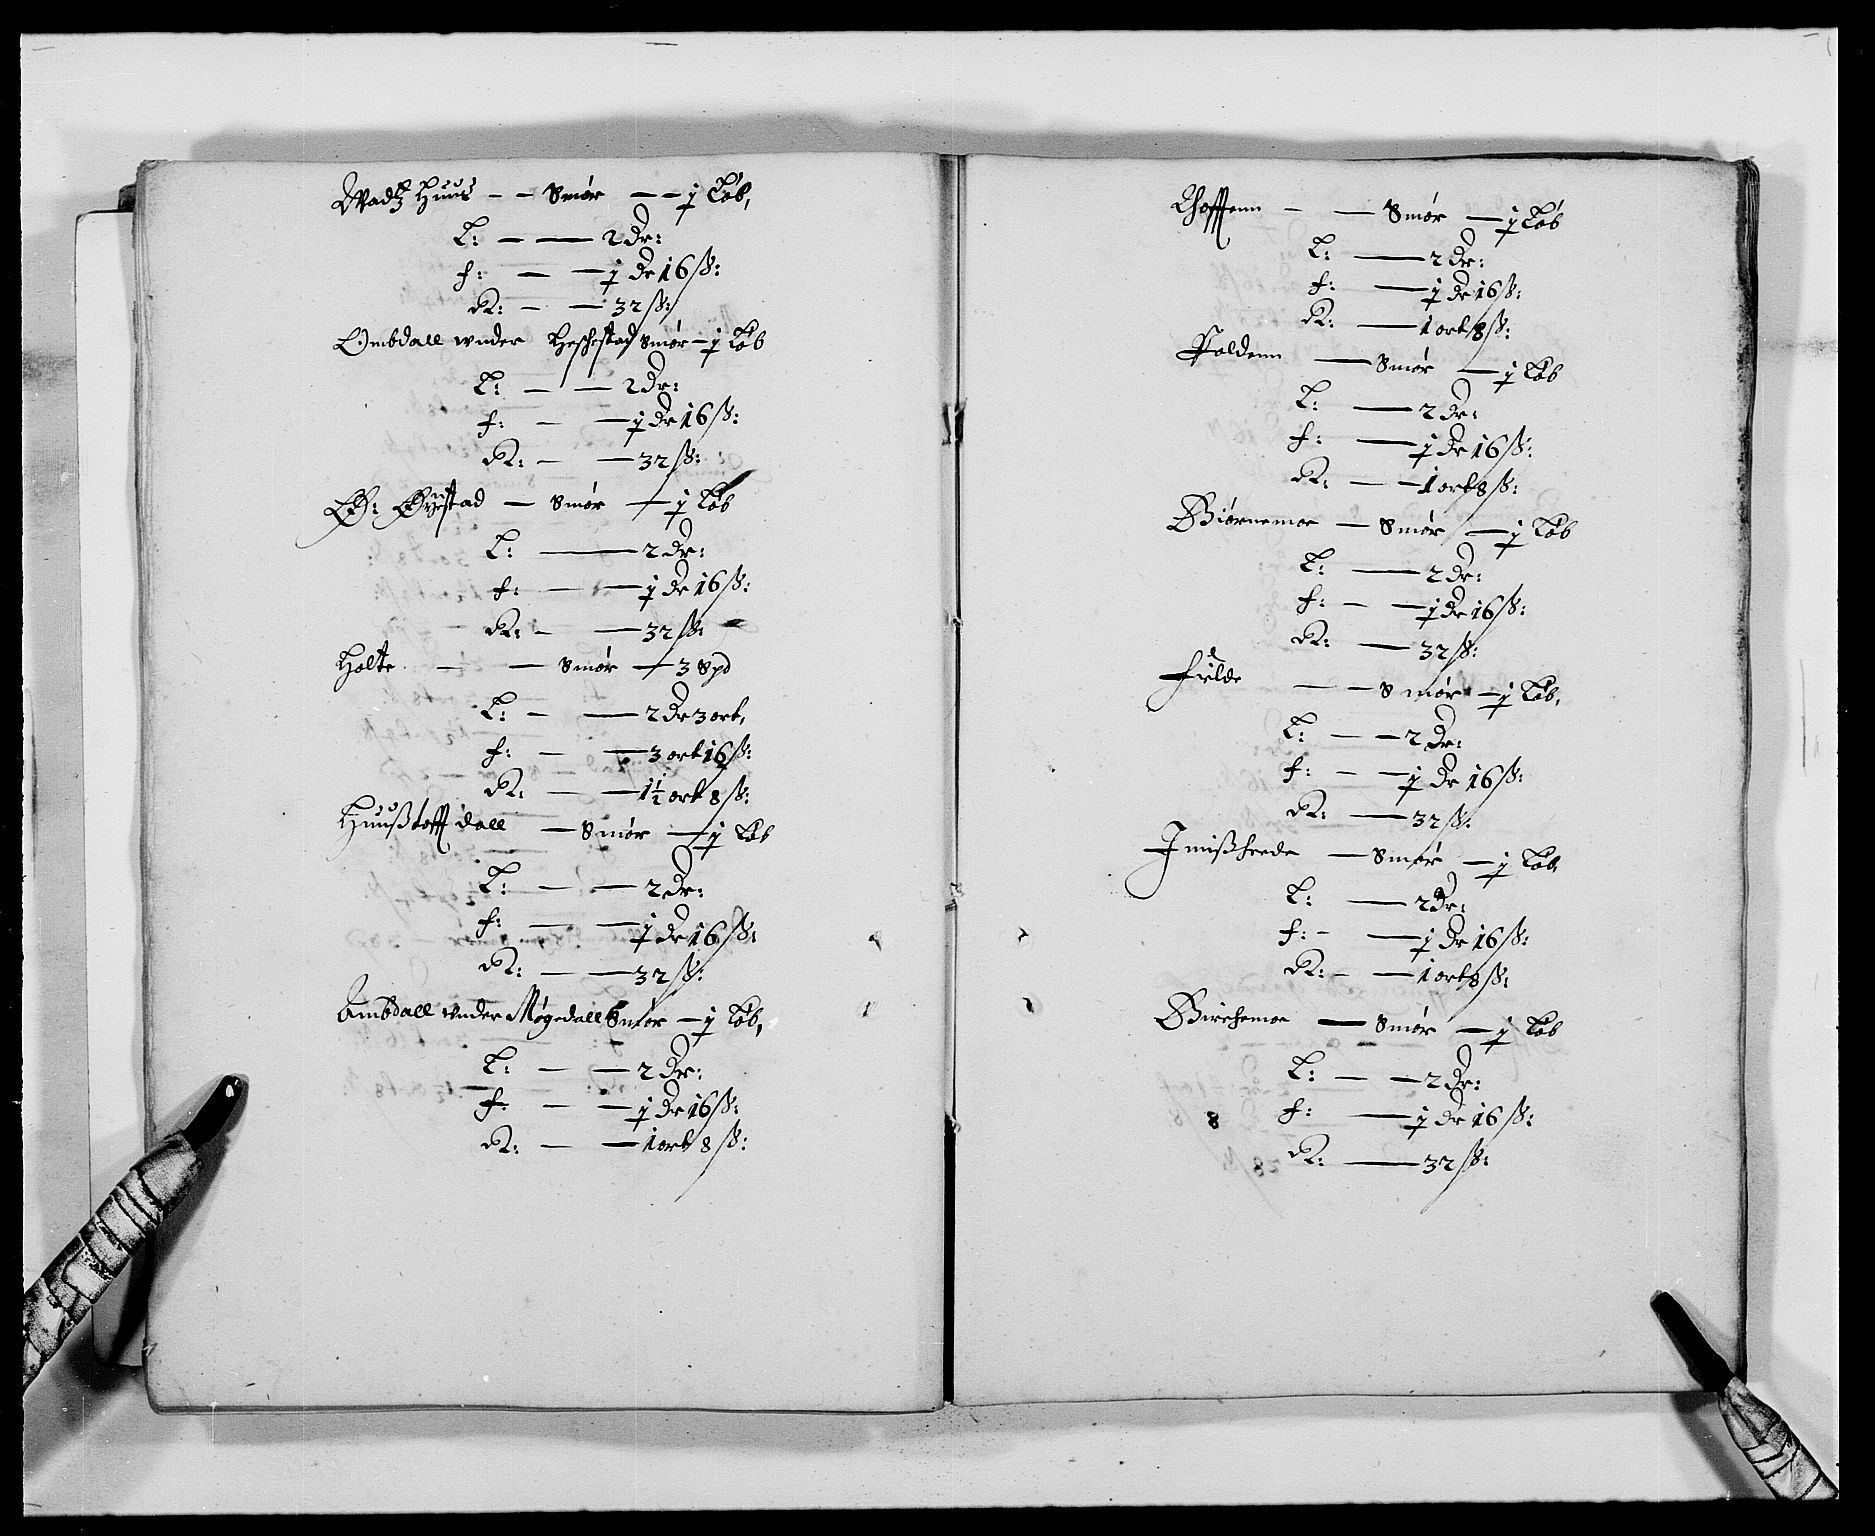 Wadtz Huus - - Smør - - j Løb,
L: - - 2 Dr:
f: - - j Dr 16 ß:
R: - - 32 ß:
Ombdall wnder Heschestad Smør - j Løb
L: - - 2 Dr:
f: - - j Dr 16 ß:
R: - - 32 ß:
Ø: Øyestad - Smør - j Løb
L: - 2 Dr:
f: - - j Dr 16 ß:
R: - - 32 ß:
Holte - - Smør - 3 Spd
L: - - 2 Dr 3 ort,
f: - - 3 ort 16 ß:
R: - - 1½ ort 8 ß:
Huußtofft dall - Smør - j Løb
L: - - 2 Dr:
f: - - j Dr 16 ß:
R: - - 32 ß:
Ambdall wnder Møgedall Smør - j Løb,
L: - - 2 Dr:
f: - - j Dr 16 ß:
R: - - 1 ort 8 ß:
- - Smør - j Løb
L: - 2 Dr:
f: - j Dr 16 ß:
R: - 1 ort 8 ß:
- Smør - j Løb
L: - 2 Dr:
f: - j Dr 16 ß:
R: - - 1 ort 8 ß:
Biørnemoe - Smør - j Løb
L: - 2 Dr:
f: - - j Dr 16 ß:
R: - 32 ß:
Fielde - - Smør - j Løb,
L: - - 2 Dr:
f: - - j Dr 16 ß:
R: - 32 ß:
- Smør - j Løb,
L: - 2 Dr:
f: - - j Dr 16 ß:
R: - - 1 ort 8 ß:
Birchemoe - Smør - j Løb
L: - - 2 Dr:
8 f: - j Dr 16 ß:
R: - 32 ß: